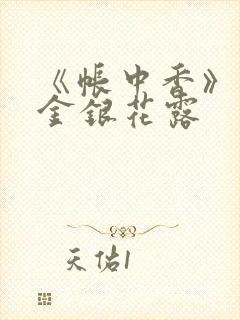 《帐中香》
金银花露
天佑1